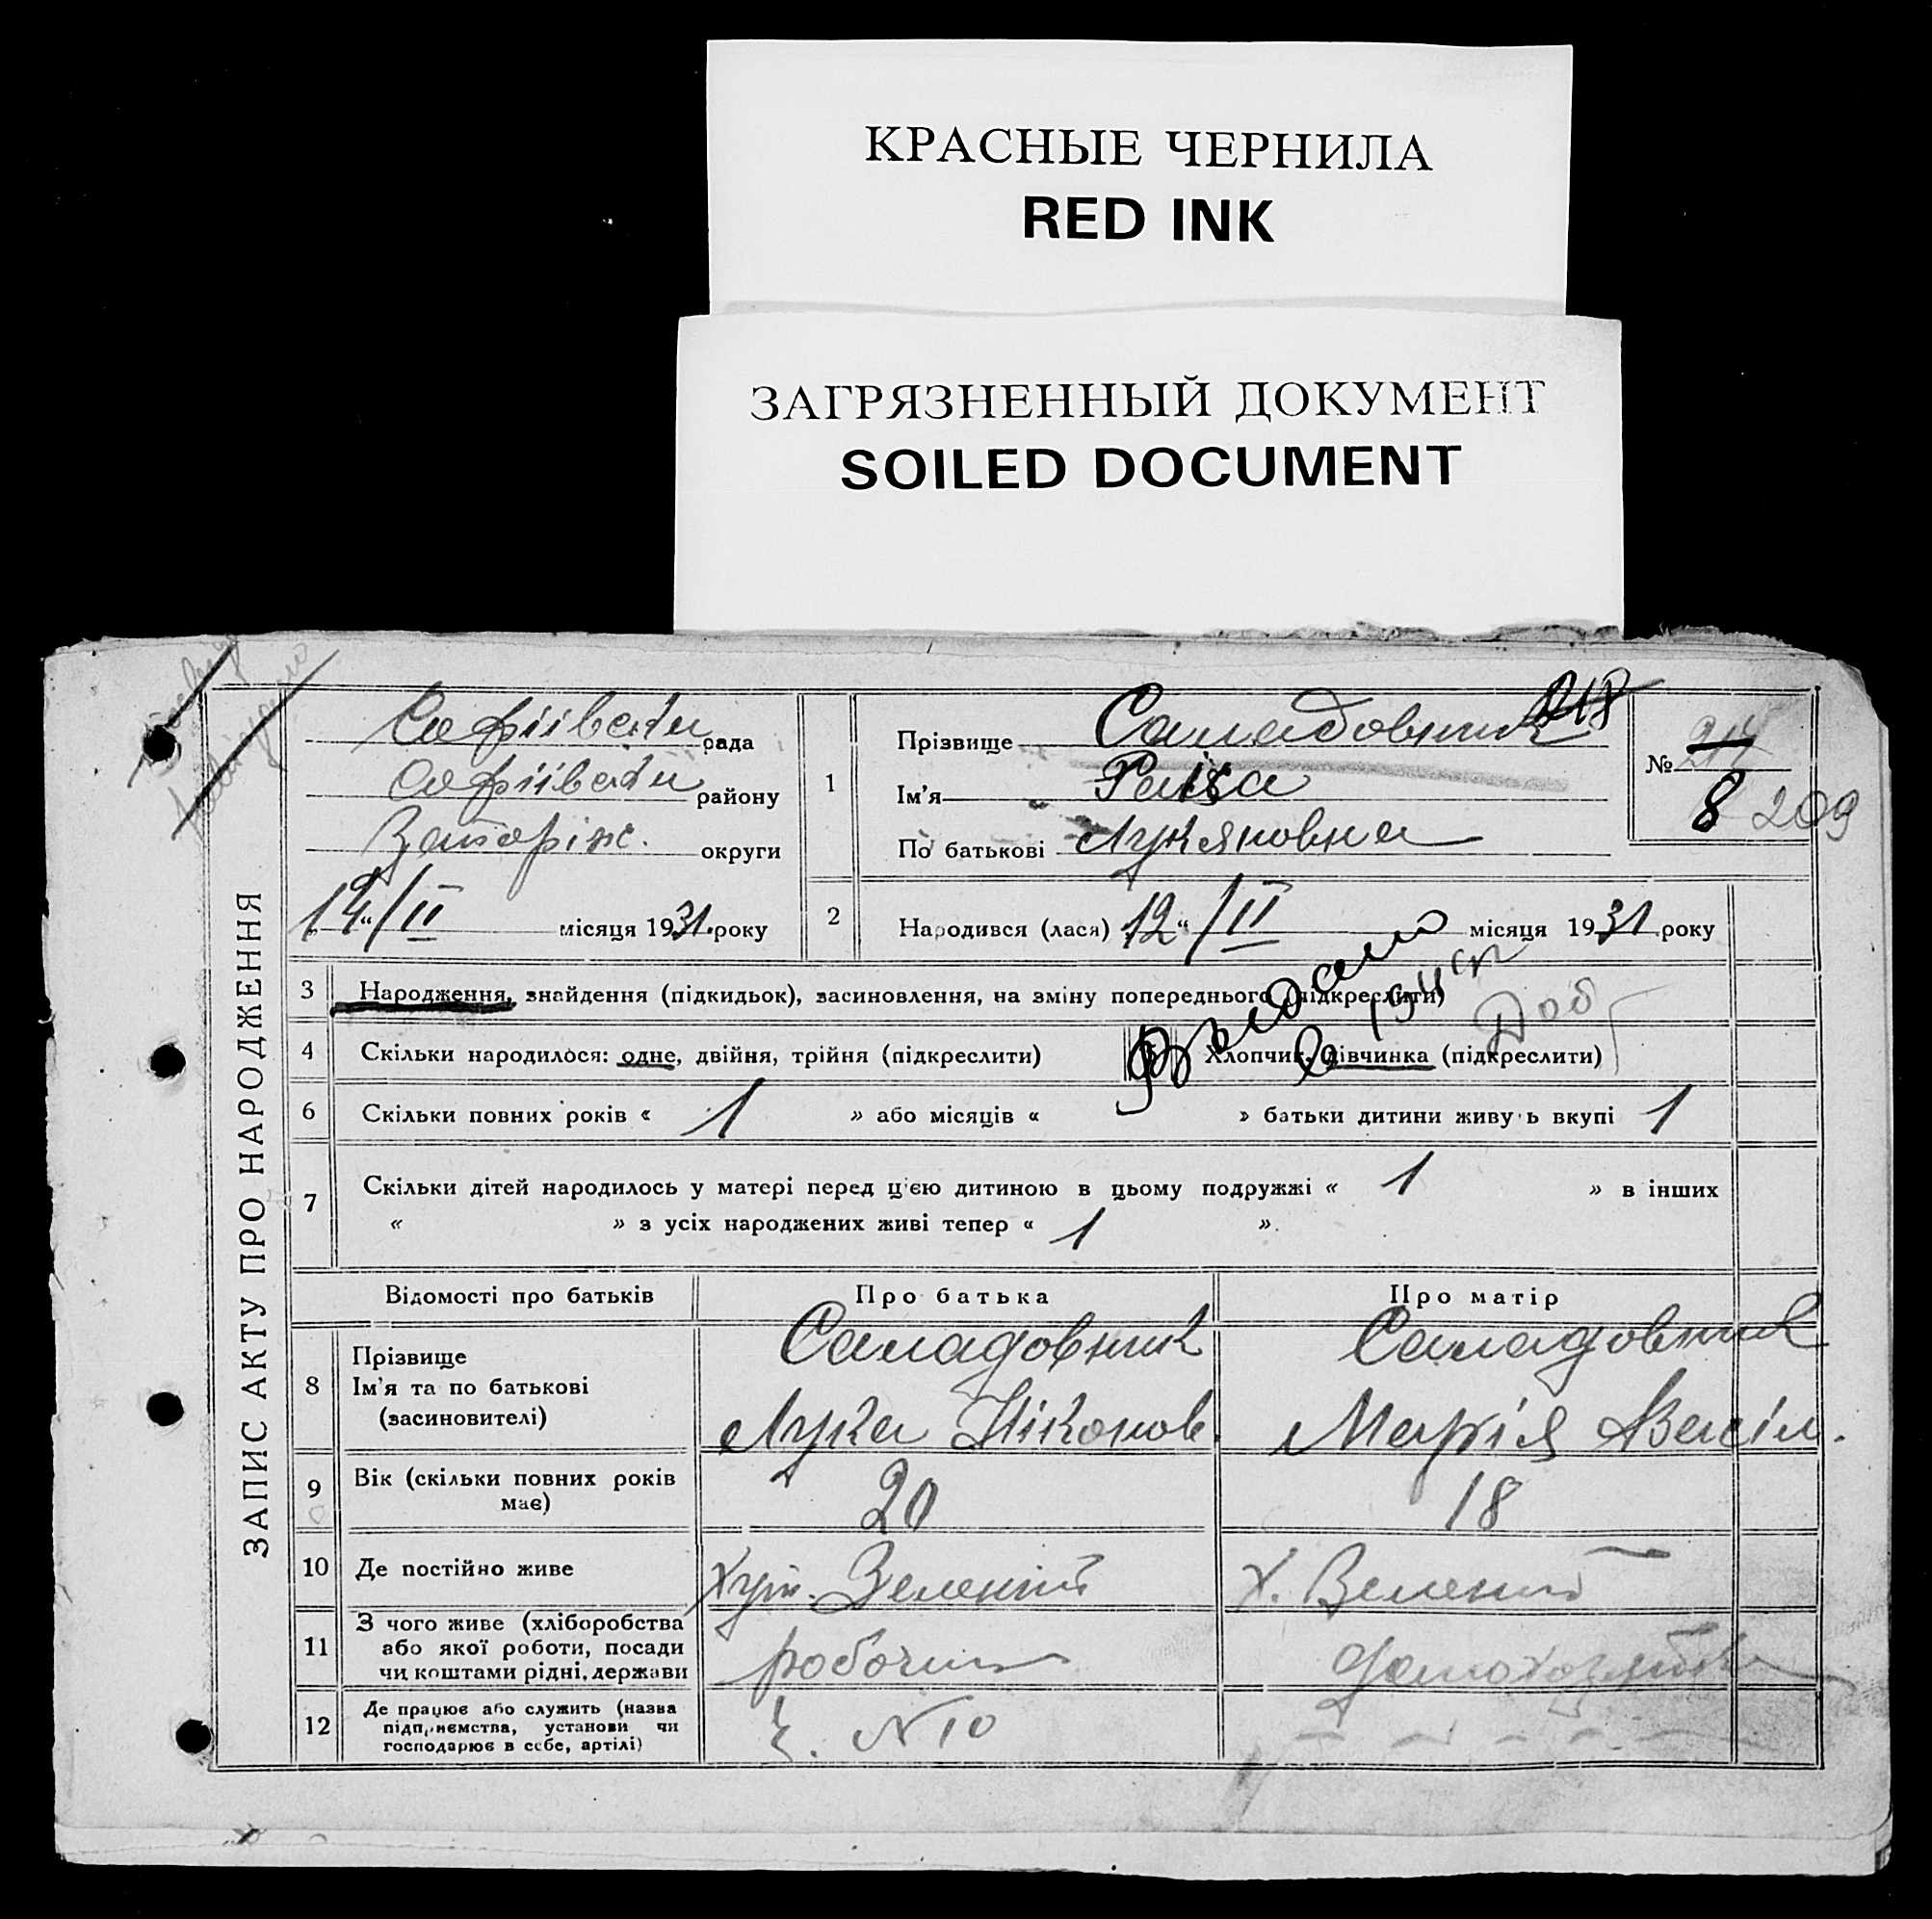 КРАСНЫЕ ЧЕРНИЛА
RED INK
ЗАГРЯЗНЕННЫЙ ДОКУМЕНТ
SOILED DOCUMENT
ЗАПИС АКТУ ПРО НАРОДЖЕННЯ
рада
району
Запоріж. округи
14/II місяця 1931. року
218
1 Прізвище
Ім'я Раїса
По батькові Лукяновна
№ 214
8 209
2 Народився (лася) 12/II місяця 1931 року
3 Народження, знайдення (підкидьок), засиновлення, на зміну попереднього (підкреслити)
4 Скільки народилося: одне, двійня, трійня (підкреслити)
Хлопчик, дівчинка (підкреслити)
6 Скільки повних років « 1 » або місяців « » батьки дитини живуть вкупі 1
7 Скільки дітей народилось у матері перед цією дитиною в цьому подружжі « 1 » в інших
« » з усіх народжених живі тепер « 1 ».
Відомості про батьків Про батька Про матір
8 Прізвище
Ім'я та по батькові
(засиновителі)
Лука Ніконов. Марія Васіл.
9 Вік (скільки повних років
має) 20 18
10 Де постійно живе Хут. Зелений Х. Зелений
11 З чого живе (хліборобства
або якої роботи, посади
чи коштами рідні, держави
робочий
12 Де працює або служить (назва
підприємства, установи чи
господарює в себе, артілі)
N 10